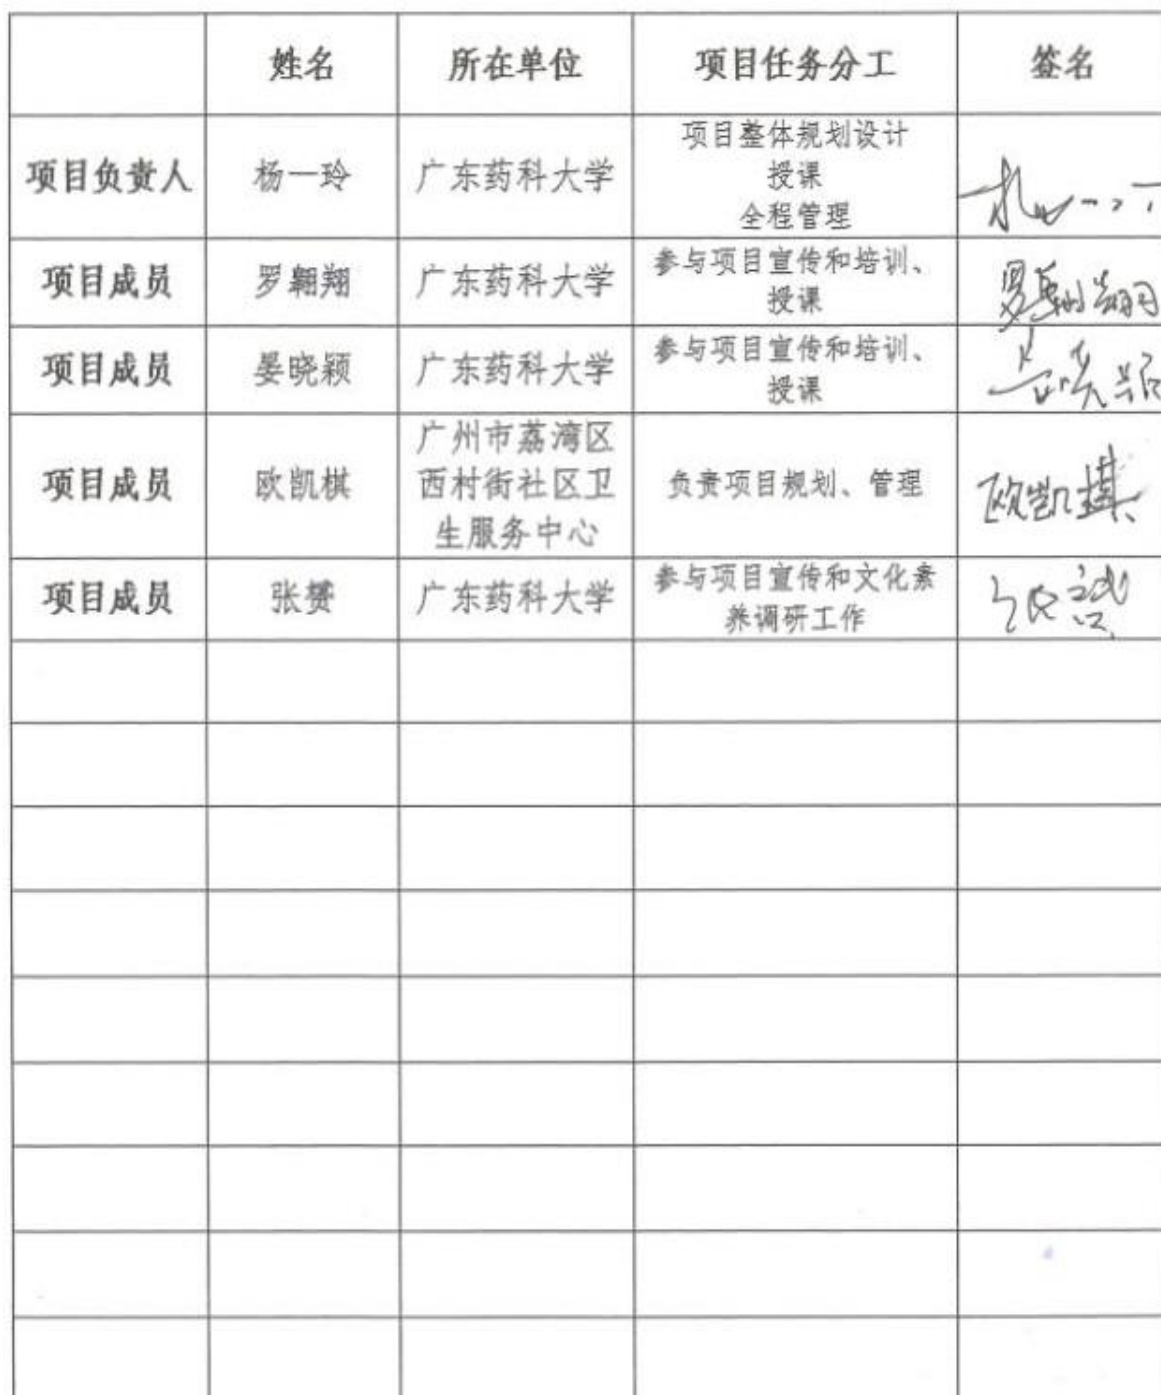 姓名 所在单位 项目任务分工 签名
项目负责人 杨一玲 广东药科大学 项目整体规划设计
授课
全程管理
项目成员 罗翱翔 广东药科大学 参与项目宣传和培训、
授课 罗翱翔
项目成员 晏晓颖 广东药科大学 参与项目宣传和培训、
授课
项目成员 欧凯棋 广州市荔湾区
西村街社区卫
生服务中心 负责项目规划、管理 欧凯棋
项目成员 张赟 广东药科大学 参与项目宣传和文化素
养调研工作